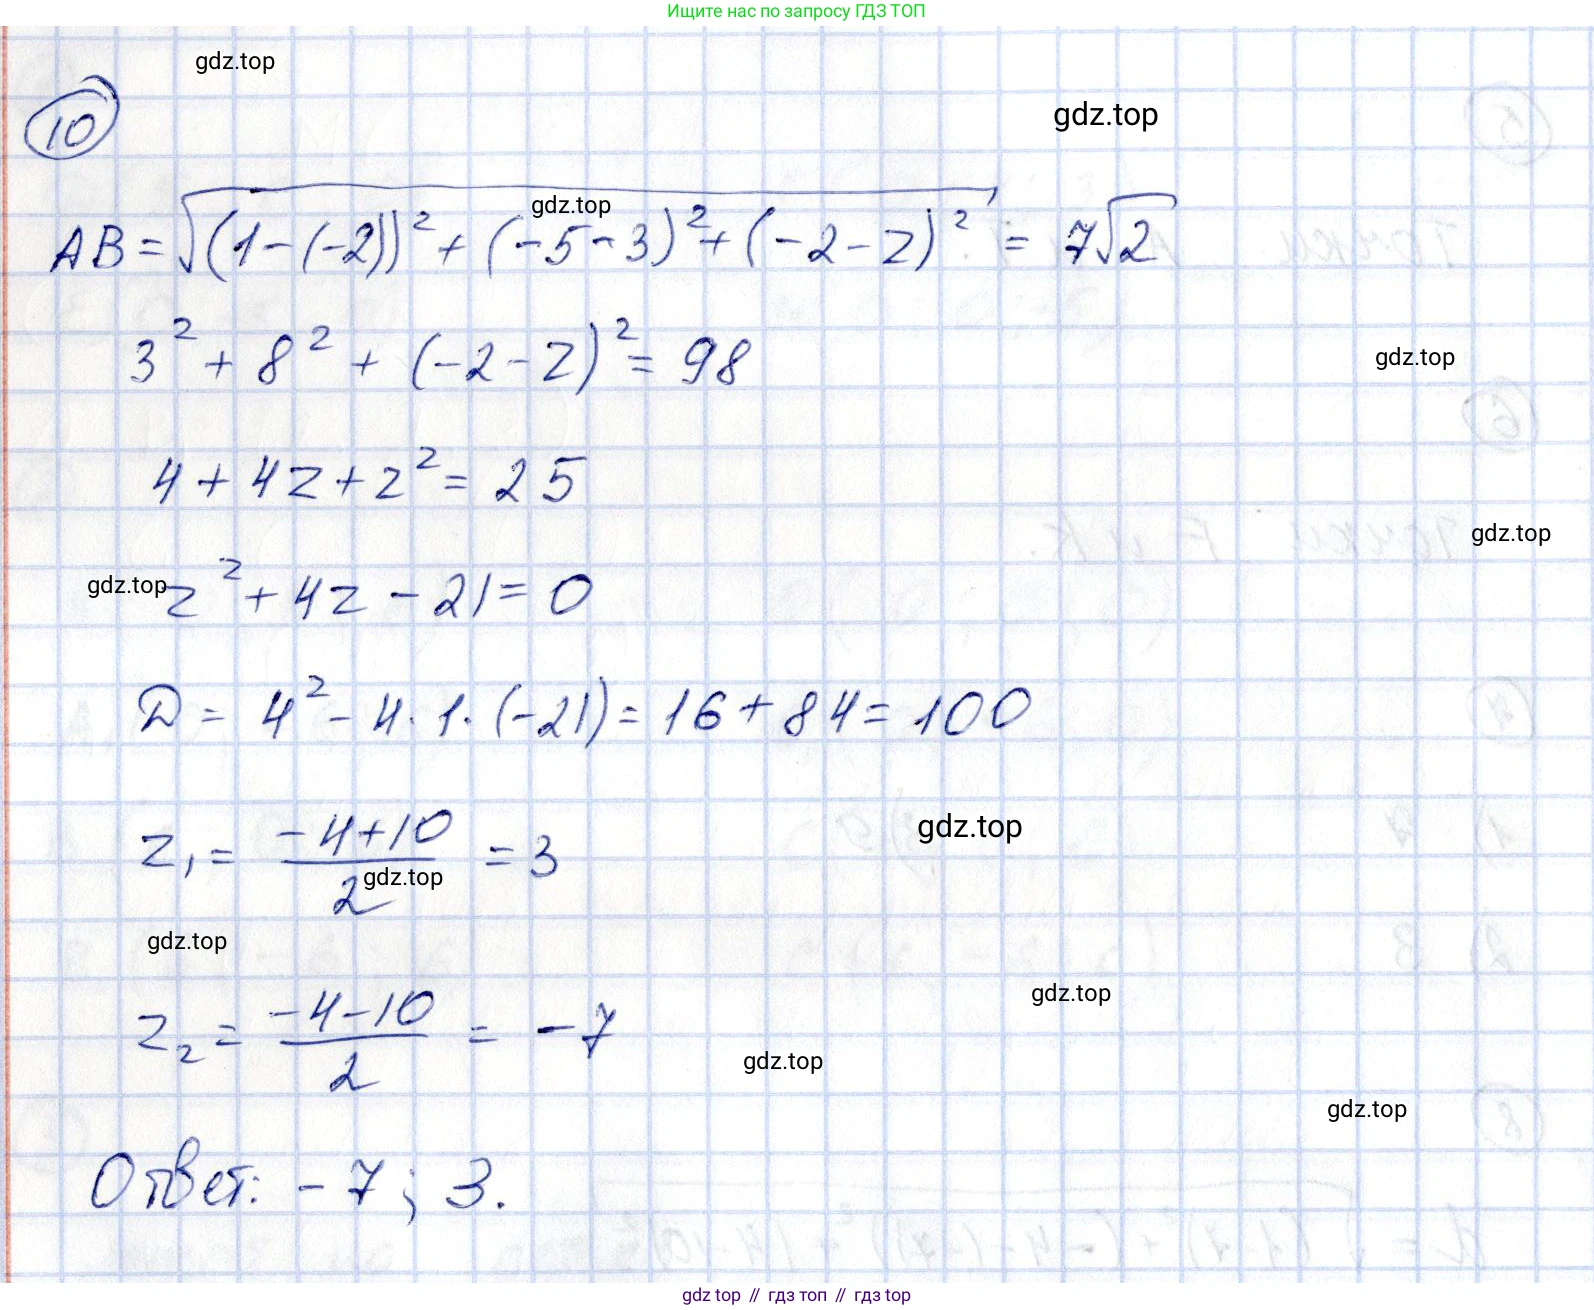 Ищите нас по запросу ГДЗ ТОП
gdz.top
gdz.top
10
gdz.top
AB = √((1-(-2))² + (-5-3)² + (-2-z)²) = 7√2
3² + 8² + (-2-z)² = 98
gdz.top
4 + 4z + z² = 25
gdz.top
gdz.top
z² + 4z - 21 = 0
D = 4² - 4·1·(-21) = 16 + 84 = 100
z₁ = (-4+10)/2 = 3
gdz.top
gdz.top
gdz.top
gdz.top
z₂ = (-4-10)/2 = -7
gdz.top
gdz.top
Ответ: -7; 3.
gdz.top // гдз топ // гдз top